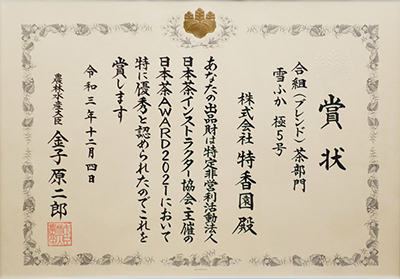 賞状
合組（ブレンド）茶部門
雪ふか 極5号
株式会社 特香園 殿
あなたの出品財は特定非営利活動法人
日本茶インストラクター協会主催の
日本茶AWARD2021において
特に優秀と認められたのでこれを
賞します
令和三年十二月四日
農林水産大臣 金子原二郎